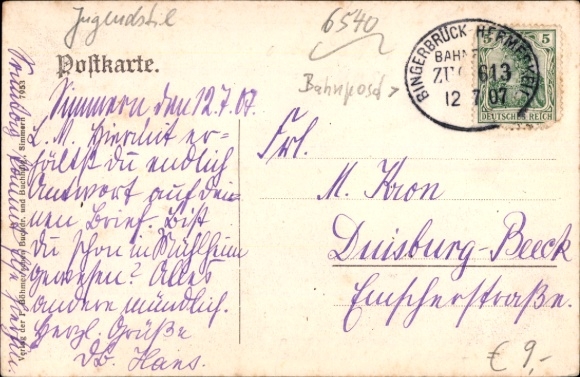 Jugendstil
6540
Postkarte.
Bahnpost >
BINGERBRÜCK-HERMESKEIL
BAHNPOST
ZUG 613
12 7 07
5 5
DEUTSCHES REICH
Simmern den 12.7.07.
L. M. Hiermit er-
hältst du endlich
Antwort auf dei-
nen Brief. Bist
du schon in Mühlheim
gewesen? Alles
andere mündlich.
Herzl. Grüße
Db. Hans.
Frl.
M. Kron
Duisburg-Beeck
Emscherstraße.
Verlag der F. Böhmer'schen Buchdr. und Buchhdlg., Simmern
€ 9,-